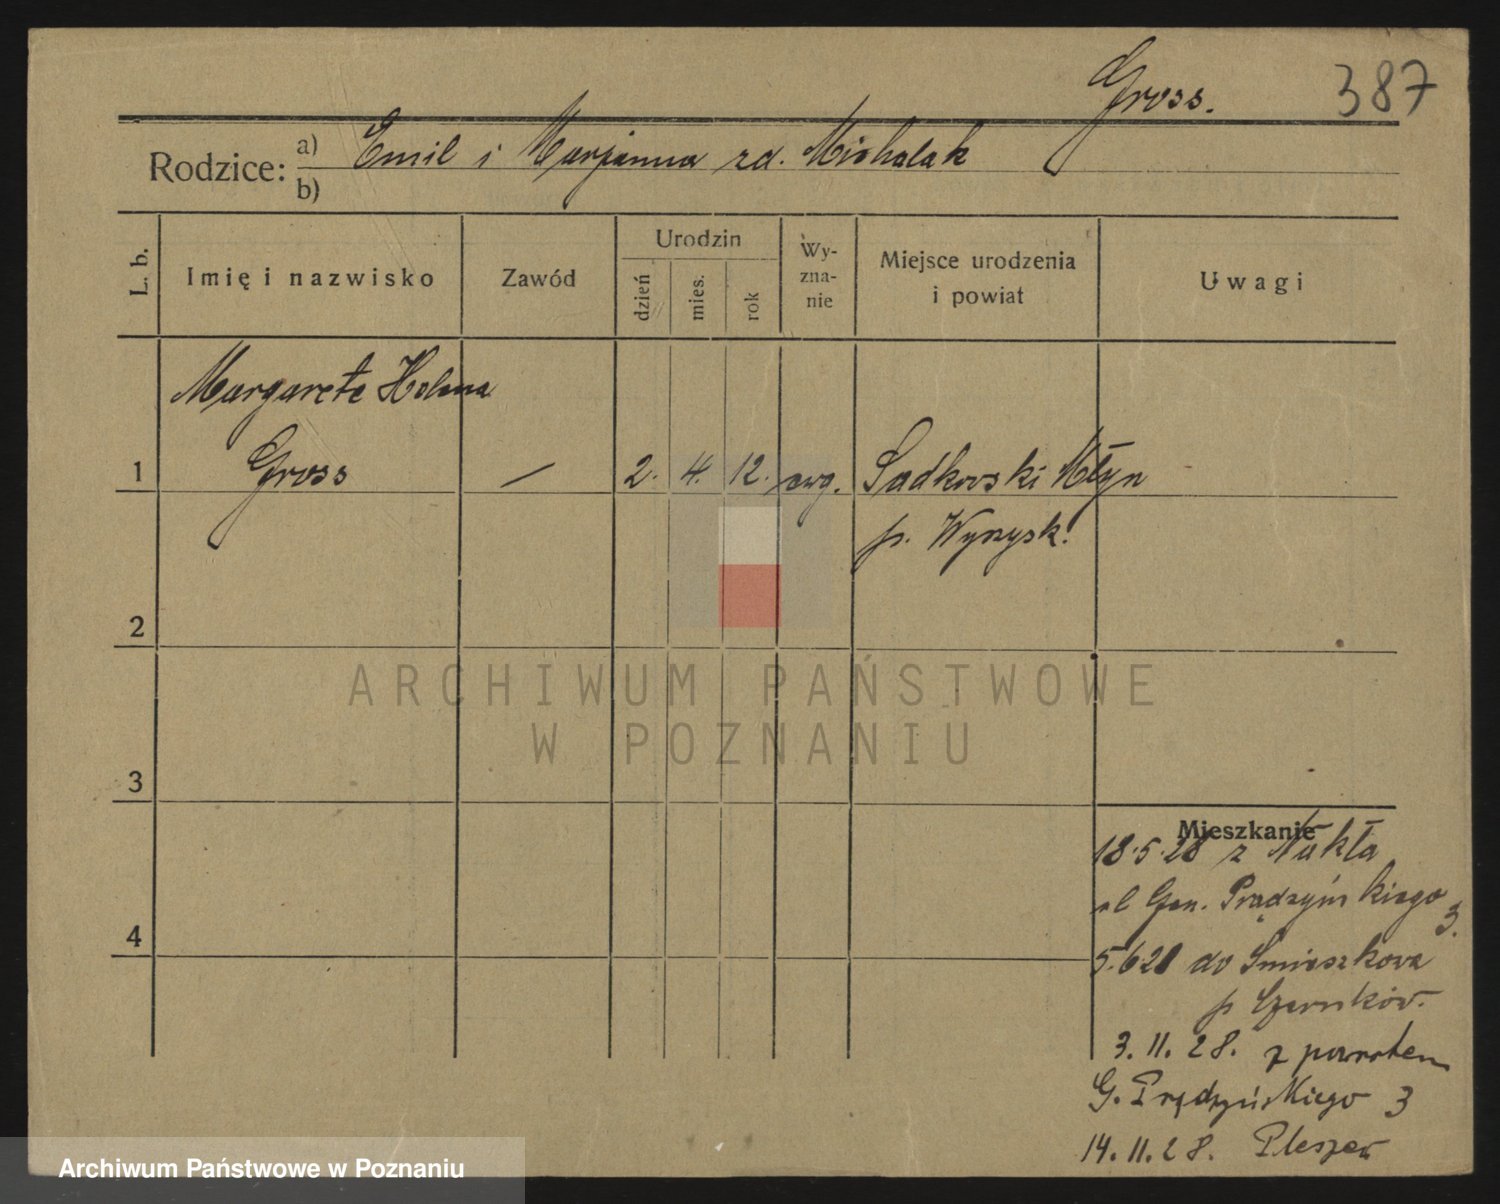 Gross.
387
Rodzice: a) Emil i Marjanna zd. Michalak
b)
L. b.
Imię i nazwisko
Zawód
Urodzin
dzień
mies.
rok
Wy-
zna-
nie
Miejsce urodzenia
i powiat
Uwagi
Margarete Helena
1 Gross — 2. 4. 12. ewg. Sadkowski Młyn
p. Wyrzysk.
2
3
4
Mieszkanie
18.5.28 z Nakła
ul Gen. Prądzyńskiego 3.
5.6.28 do Śmieszkowa
p Czarnków.
3.11.28. z powrotem
G. Prądzyńskiego 3
14.11.28. Pleszew
ARCHIWUM PAŃSTWOWE
W POZNANIU
Archiwum Państwowe w Poznaniu